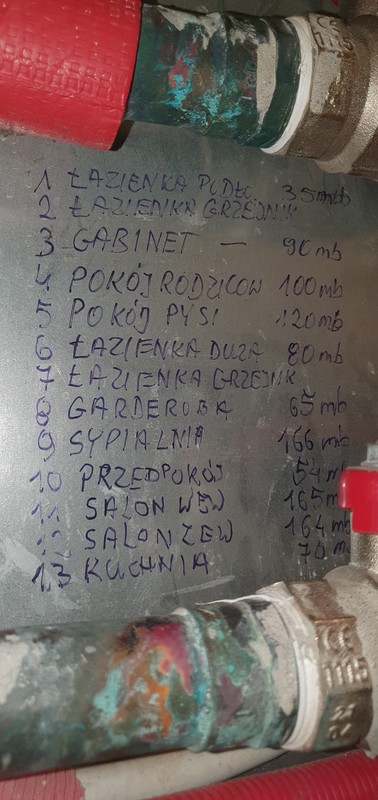 CE
1115
1 ŁAZIENKA PODŁO 35mb
2 ŁAZIENKA GRZEJNIK
3 GABINET — 90 mb
4 POKÓJ RODZICOW 100 mb
5 POKÓJ PYSI 120 mb
6 ŁAZIENKA DUŻA 80 mb
7 ŁAZIENKA GRZEJNIK
8 GARDEROBA 65 mb
9 SYPIALNIA 166 mb
10 PRZEDPOKÓJ 54 m
11 SALON WEW 165 m
12 SALON ZEW 164 m
13 KUCHNIA 70 m
CE
1115